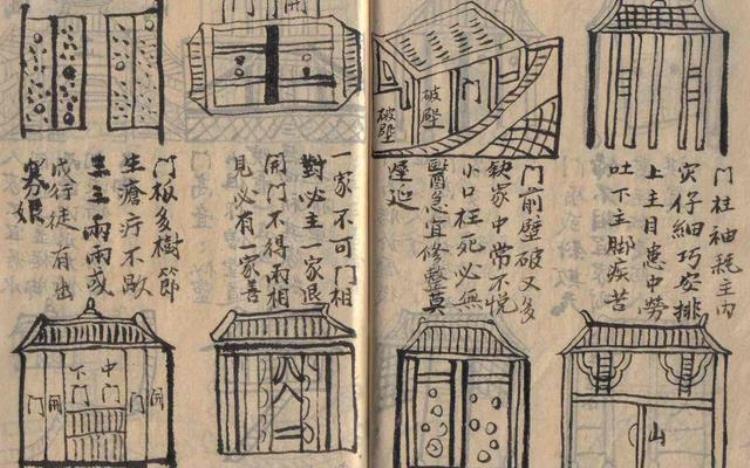 门柱袖綂主内
灾仔細巧安排
上主目患中劳
吐下主脚疾苦
破壁
破壁
门
门前壁破又多
缺家中常不悦
小口枉死必無
醫急宜修整莫
门
開
一家不可门相
對必主一家退
開门不得兩相
見必有一家善
门板多樹節
生瘡疔不歇
兩兩或
成行徒有出
山
開
门
中门
下门
開
门